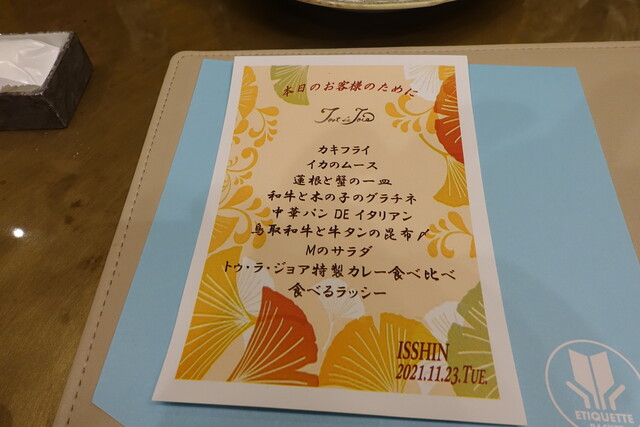 本日のお客様のために
カキフライ
イカのムース
蓮根と蟹の一皿
和牛と木の子のグラチネ
中華パン DE イタリアン
鳥取和牛と牛タンの昆布〆
Mのサラダ
トゥ・ラ・ジョア特製カレー食べ比べ
食べるラッシー
ISSHIN
2021.11.23.TUE.
ETIQUETTE